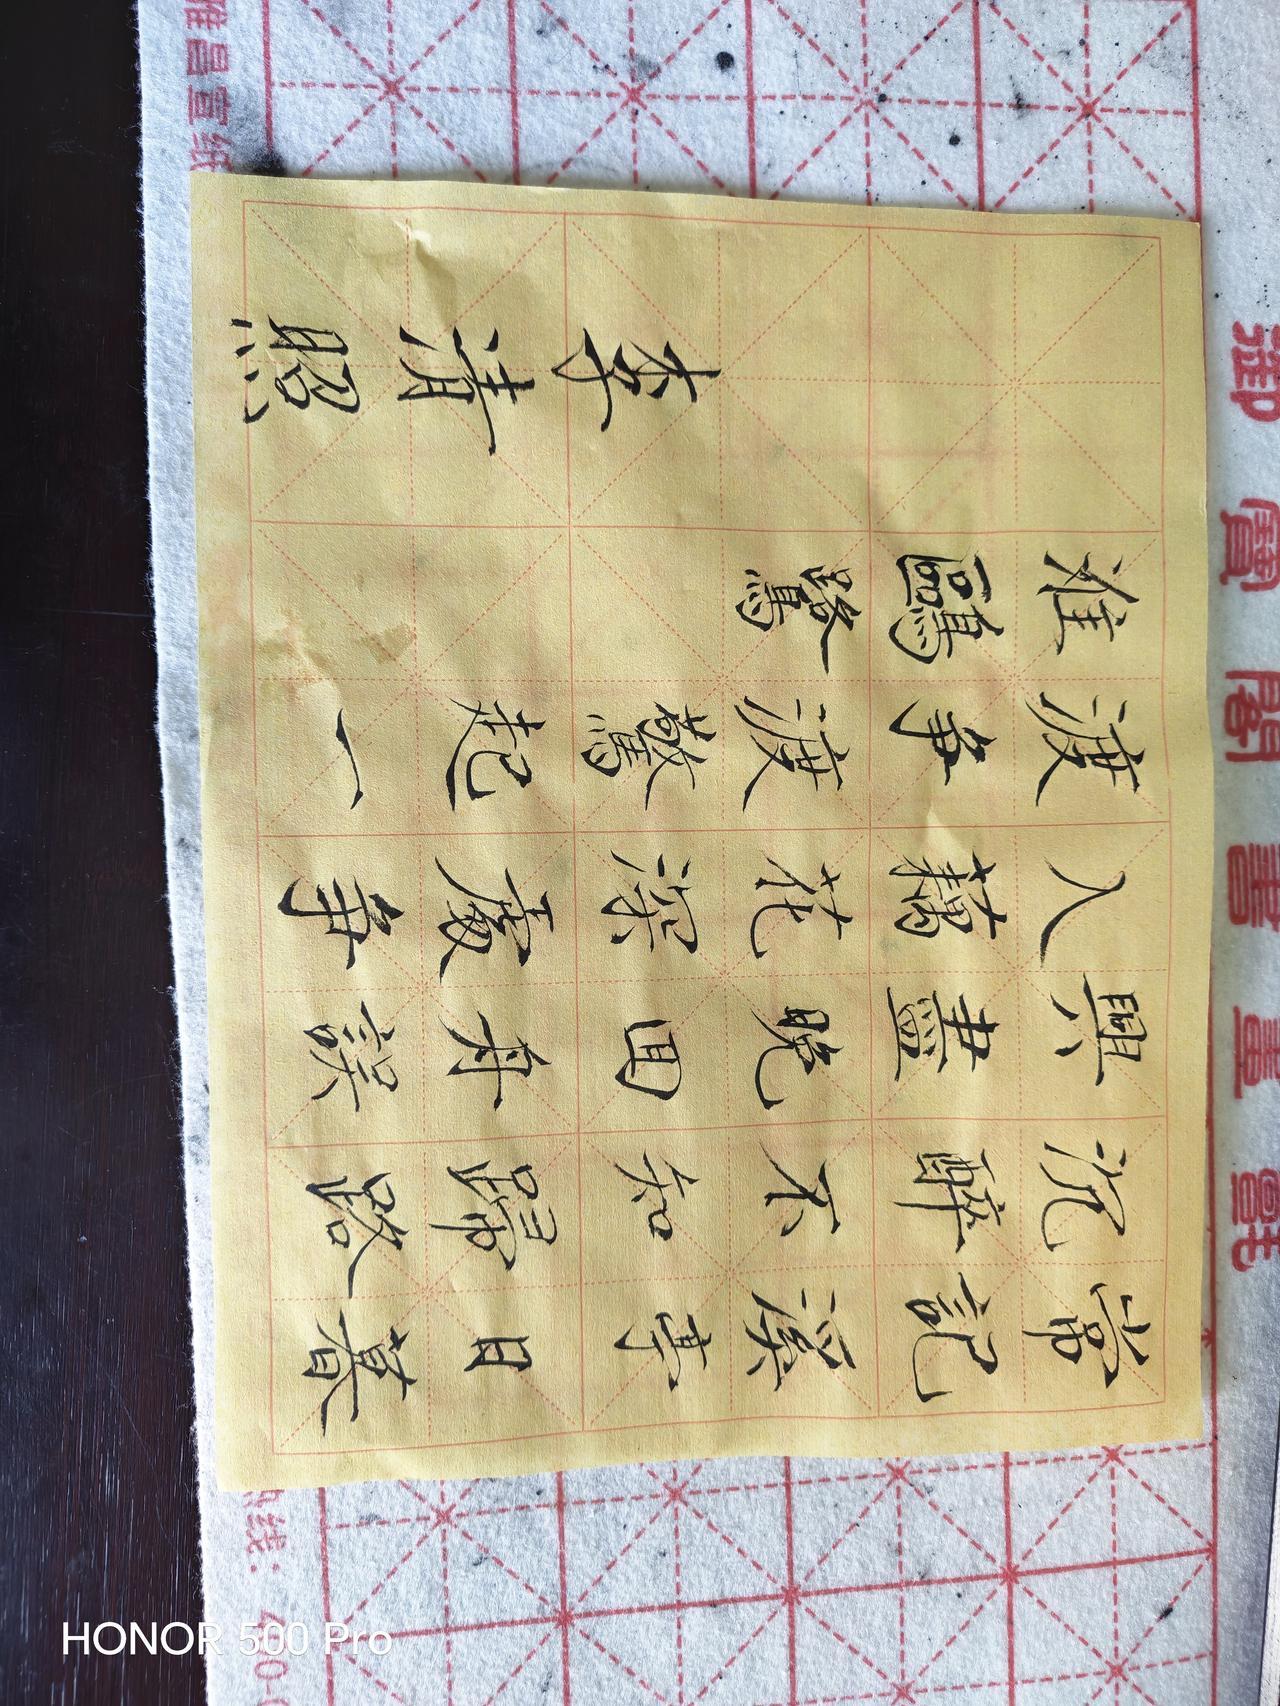 常記溪亭日暮
沉醉不知歸路
興盡晚回舟誤
入藕花深處爭
渡爭渡驚起一
鷗鷺
李清照
御寶閣書畫氈
雅昌宣纸
线: 40-0
HONOR 500 Pro